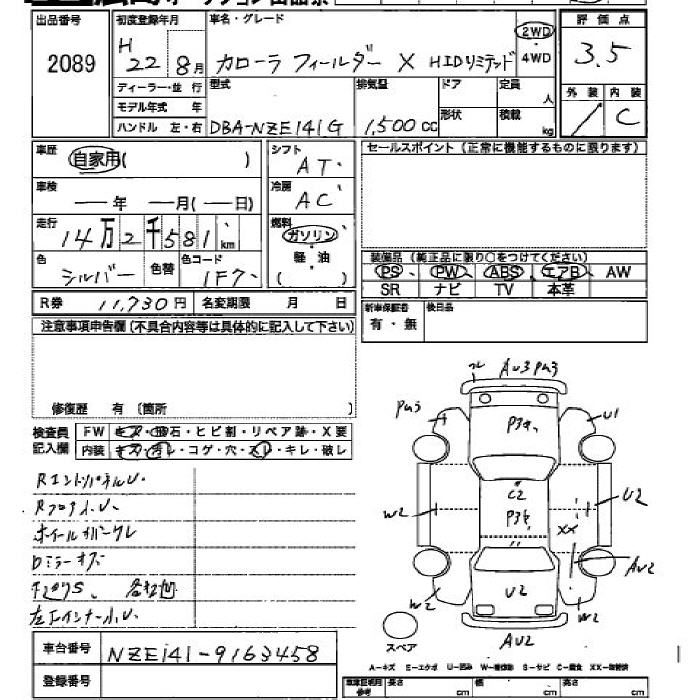 出品番号
2089
初度登録年月
H
22 8月
ディーラー・並 行
モデル年式 年
ハンドル 左・右
車名・グレード
カローラ フィールダー X HIDリミテッド
2WD
4WD
型式
DBA-NZE141G
排気量
1,500 cc
ドア
形状
定員
人
積載
kg
評価点
3.5
外装 内装
C
車歴
自家用( )
車検
年 月( 日)
走行
14万2千581km
色
シルバー
色替
色コード
1F7
シフト
AT
冷房
AC
燃料
ガソリン
軽・油
( )
R券 11,730円 名変期限 月 日
セールスポイント(正常に機能するものに限ります)
装備品(純正品に限り○をつけてください)
PS PW ABS エアB AW
SR ナビ TV 本革
新車保証書
有・無
後日品
注意事項申告欄(不具合内容等は具体的に記入して下さい)
修復歴 有〔箇所 〕
検査員
記入欄
FW キズ・飛石・ヒビ割・リペア跡・X要
内装 キズ・汚レ・コゲ・穴・スレ・キレ・破レ
Rエンドパネルu.
ホイールカバーケレ
Dミラーキズ
車台番号 NZE141-9163458
登録番号
Au3 Pu3
Pu3
U1
P3
C2
P3
W2
U2
XX
Au2
W2
U2
W2
Au2
スペア
A-キズ E-エクボ U-凹み S-サビ C-腐食
長さ cm 幅 cm 高さ cm